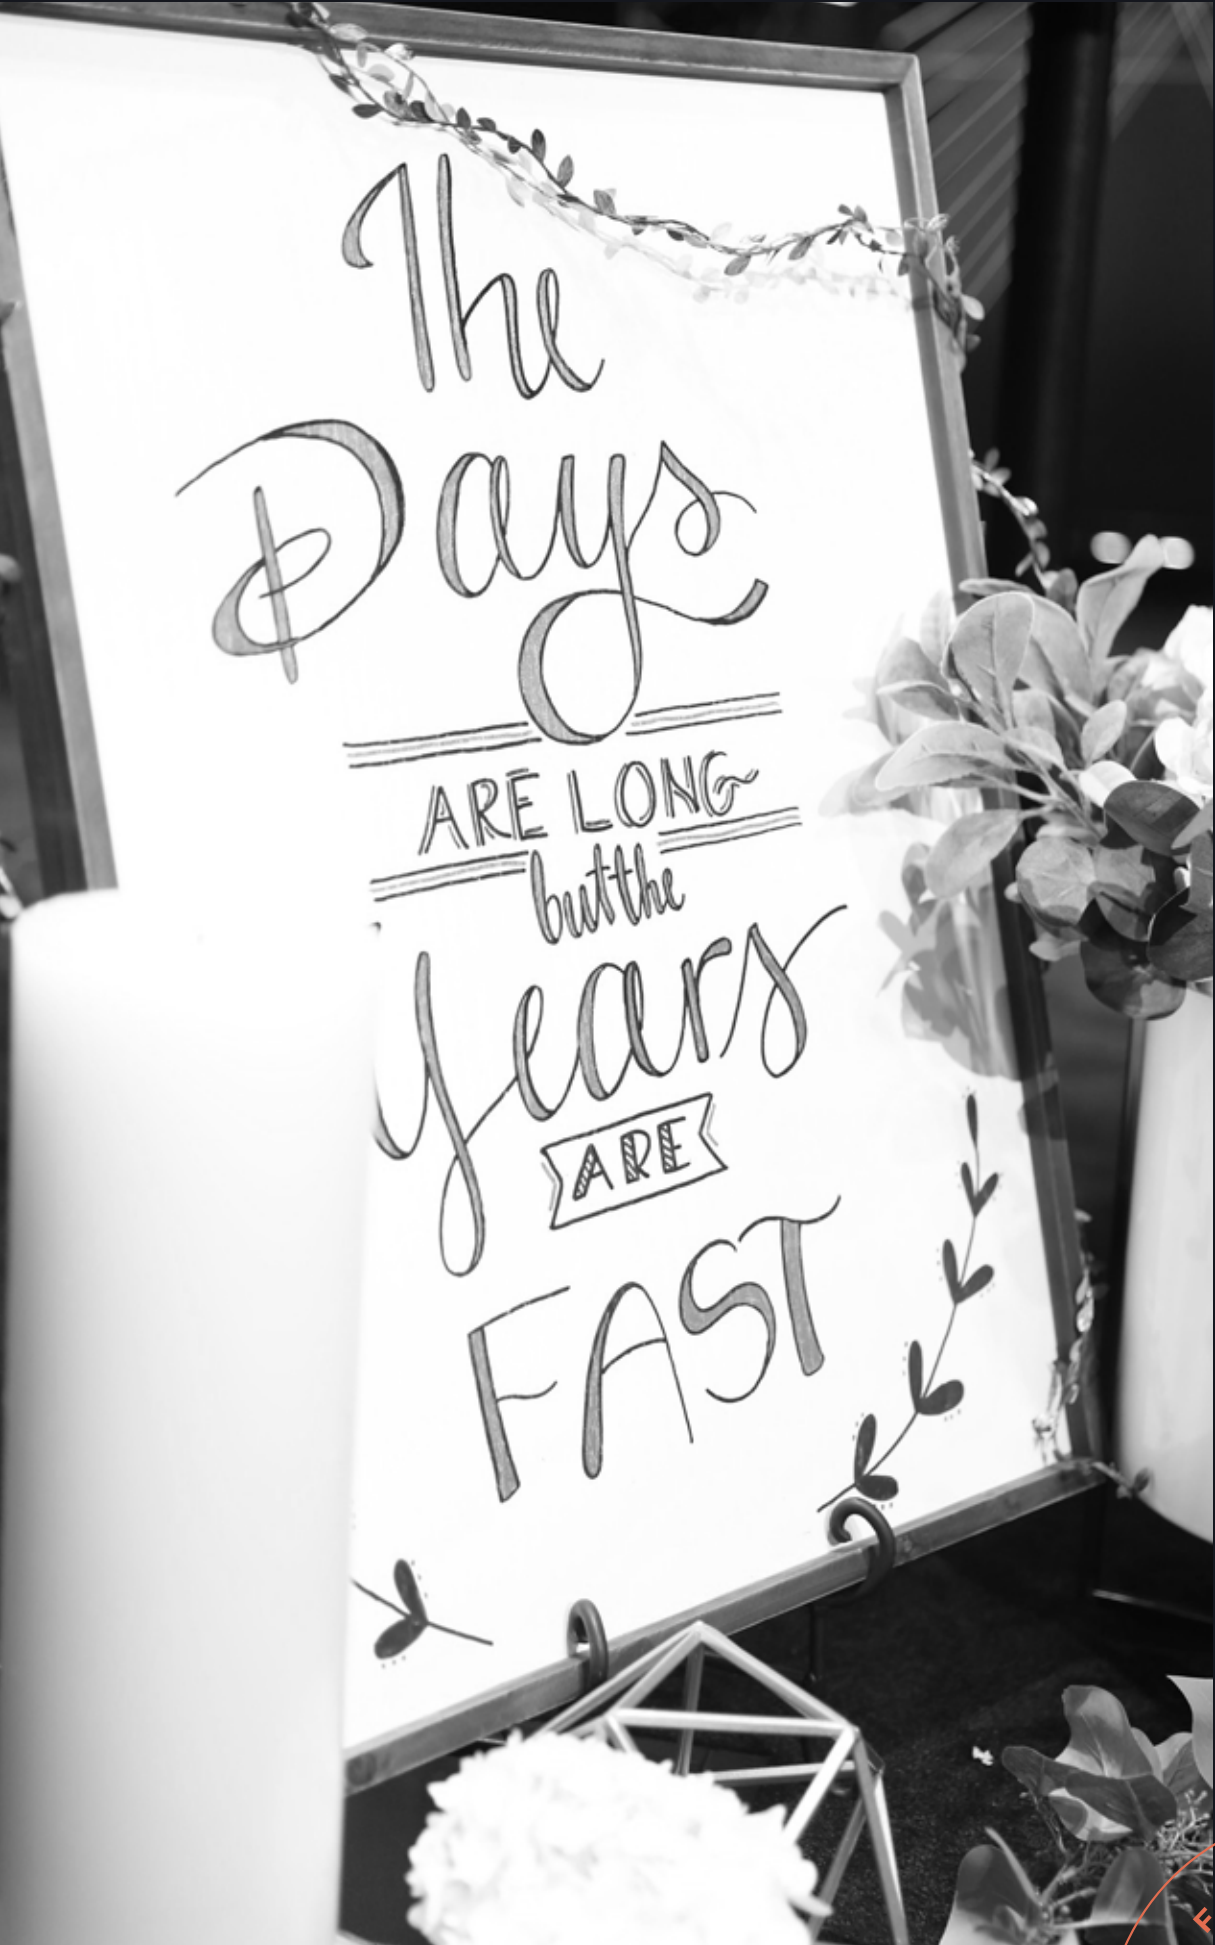 The
Days
ARE LONG
but the
Years
ARE
FAST
F